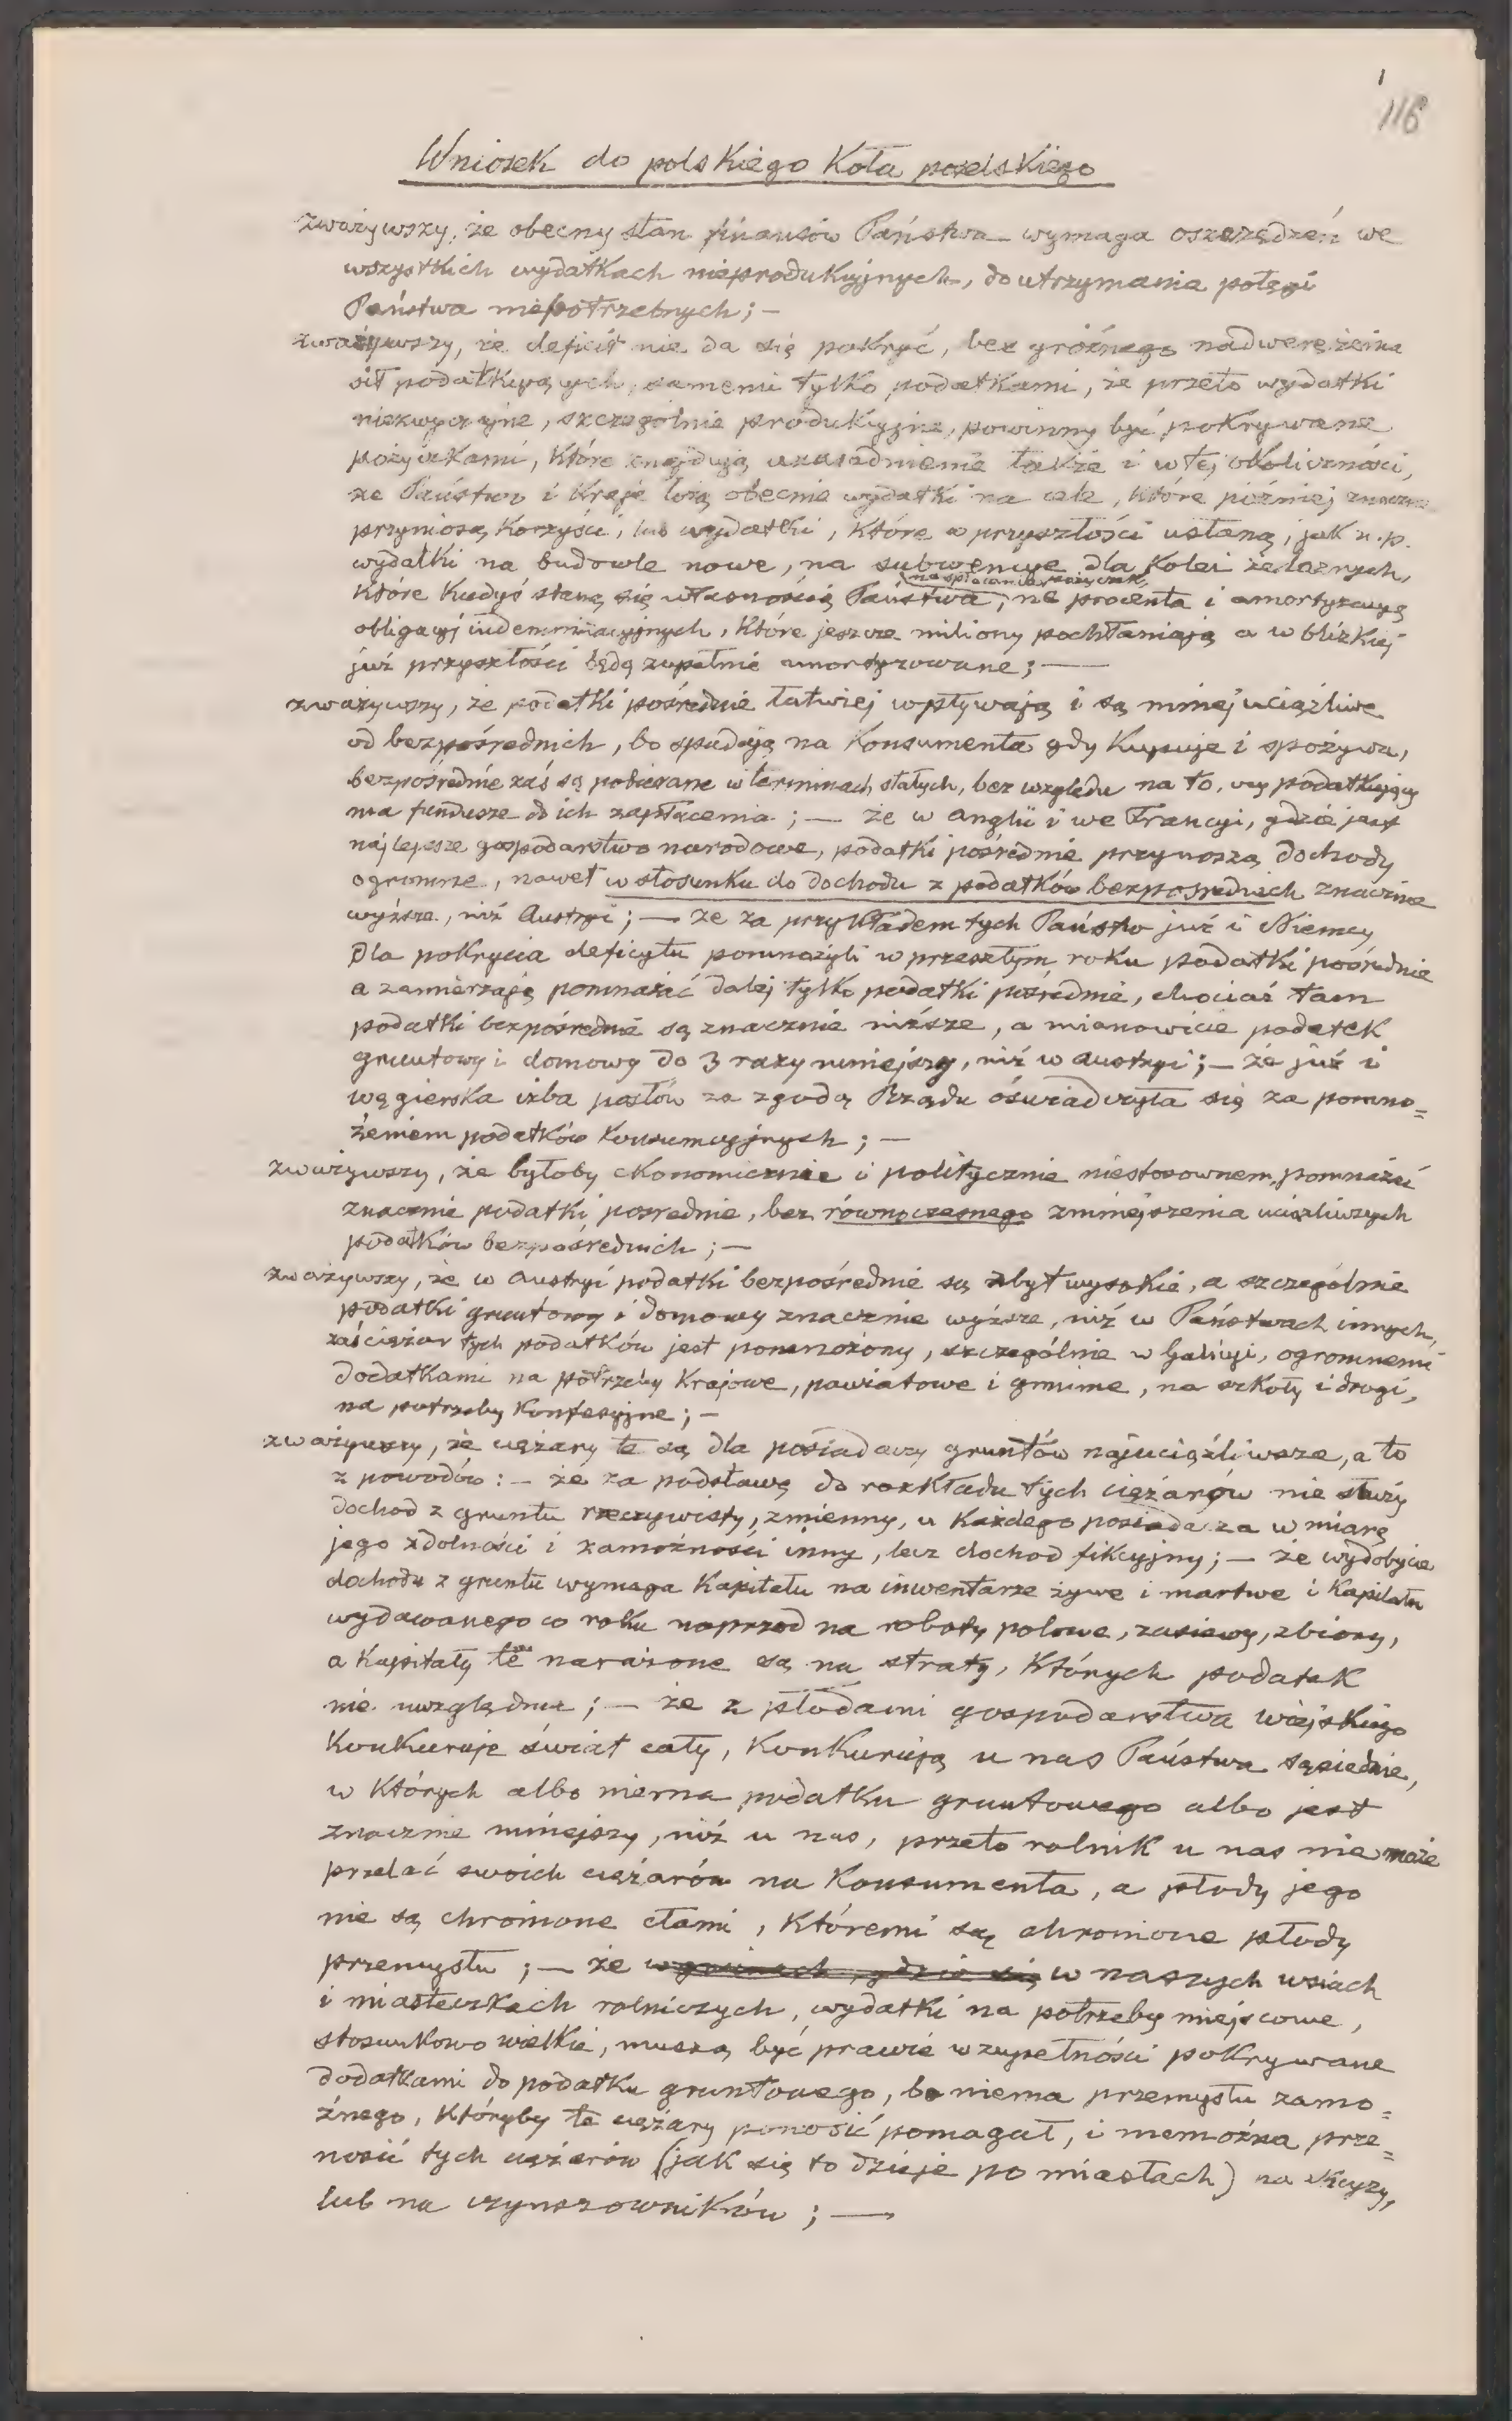 1
116
Wniosek do polskiego Koła poselskiego
zważywszy, że obecny stan finansów Państwa wymaga oszczędzeń we
wszystkich wydatkach nieprodukcyjnych, do utrzymania potęgi
Państwa niepotrzebnych; —
zważywszy, że deficit nie da się pokryć, bez groźnego nadwerężenia
sił podatkujących, samemi tylko podatkami, że przeto wydatki
niezwyczajne, szczególnie produkcyjne, powinny być pokrywane
pożyczkami, które znajdują uzasadnienie także i w tej okoliczności,
że Państwo i Kraje łożą obecnie wydatki na cele, które później znaczne
przyniosą korzyści, lub wydatki, które w przyszłości ustaną, jak n. p.
wydatki na budowle nowe, na subwencye dla kolei żelaznych,
na spłacanie pożyczek,
które kiedyś staną się własnością Państwa, na procenta i amortyzacyą
obligacyj indemnizacyjnych, które jeszcze miliony pochłaniają a w blizkiej
już przyszłości będą zupełnie amortyzowane; —
zważywszy, że podatki pośrednie łatwiej wpływają i są mniej uciążliwe
od bezpośrednich, bo spadają na konsumenta gdy kupuje i spożywa,
bezpośrednie zaś są pobierane w terminach stałych, bez względu na to, czy podatkujący
ma fundusze do ich zapłacenia; — że w Anglii i we Francyi, gdzie jest
najlepsze gospodarstwo narodowe, podatki pośrednie przynoszą dochody
ogromne, nawet w stosunku do dochodu z podatków bezpośrednich znacznie
wyższe, niż Austryi; — że za przykładem tych Państw już i Niemcy
dla pokrycia deficytu pomnożyli w przeszłym roku podatki pośrednie
a zamierzają pomnażać dalej tylko podatki pośrednie, chociaż tam
podatki bezpośrednie są znacznie niższe, a mianowicie podatek
gruntowy i domowy do 3 razy mniejszy, niż w Austryi; — że już i
węgierska izba posłów za zgodą Rządu oświadczyła się za pomno=
żeniem podatków konsumcyjnych; —
zważywszy, że byłoby ekonomicznie i politycznie niestosownem, pomnażać
znacznie podatki pośrednie, bez równoczesnego zmniejszenia uciążliwszych
podatków bezpośrednich; —
zważywszy, że w Austryi podatki bezpośrednie są zbyt wysokie, a szczególnie
podatki gruntowy i domowy znacznie wyższe, niż w Państwach innych,
zaś ciężar tych podatków jest pomnożony, szczególnie w Galicyi, ogromnemi
dodatkami na potrzeby Krajowe, powiatowe i gminne, na szkoły i drogi,
na potrzeby konfesyjne; —
zważywszy, że ciężary te są dla posiadaczy gruntów najuciążliwsze, a to
z powodów: — że za podstawę do rozkładu tych ciężarów nie służy
dochod z gruntu rzeczywisty, zmienny, u każdego posiadacza w miarę
jego zdolności i zamożności inny, lecz dochod fikcyjny; — że wydobycie
dochodu z gruntu wymaga kapitału na inwentarze żywe i martwe i kapitału
wydawanego co roku naprzod na roboty polowe, zasiewy, zbiory,
a kapitały te narażone są na straty, których podatek
nie uwzględnia; — że z płodami gospodarstwa wiejskiego
konkuruje świat cały, konkurują u nas Państwa sąsiednie,
w których albo niema podatku gruntowego albo jest
znacznie mniejszy, niż u nas, przeto rolnik u nas nie może
przelać swoich ciężarów na konsumenta, a płody jego
nie są chronione cłami, któremi są chronione płody
przemysłu; — że w gminach, gdzie się w naszych wsiach
i miasteczkach rolniczych, wydatki na potrzeby miejscowe,
stosunkowo wielkie, muszą być prawie w zupełności pokrywane
dodatkami do podatku gruntowego, bo niema przemysłu zamo=
żnego, któryby te ciężary ponosić pomagał, i niemożna prze=
nosić tych ciężarów (jak się to dzieje po miastach) na
lub na czynszowników; —